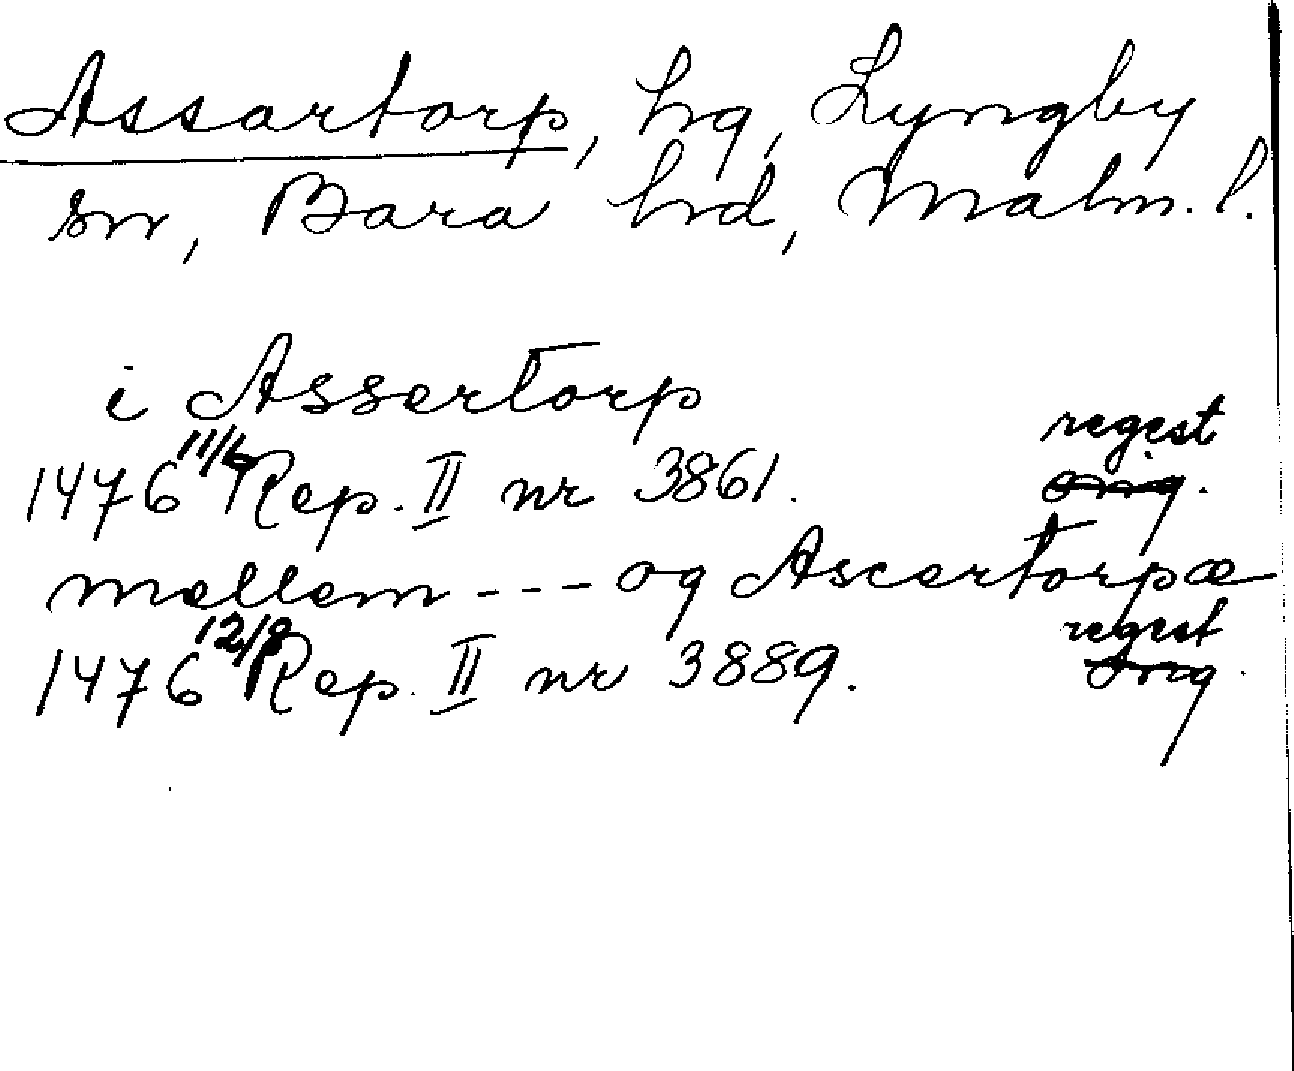 Assartorp, hg, Lyngby
sn, Bara hd, Malm. l.
i Assertorp
regest
1476 11/6 Rep. II nr 3861. orig.
mellem - - - og Ascertorpæ
regest
1476 12/8 Rep. II nr 3889. orig.